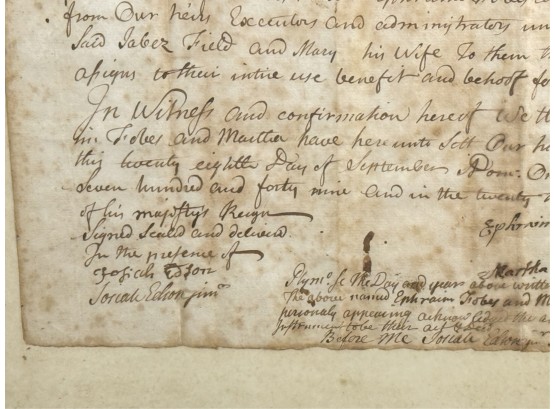 from Our heirs Executors and administrators un
Said Jabez Field and Mary his Wife To them th
asigns to their intire use benefit and behoof fo
In Witness and confirmation hereof We th
in Fobes and Martha have here unto Sett Our ha
this twenty eighth Day of September Dom: On
Seven hundred and forty nine and in the twenty
of his majestys Reign
Signed Sealed and deliverd
In the presence of
Josiah Edson
Josiah Edson junr
Ephraim
Martha
Plymo ss The Day and year above written
The above named Ephraim Fobes and M
personaly appearing acknowledged the a
Instrument to be their act & deed
Before Me Josiah Edson jun